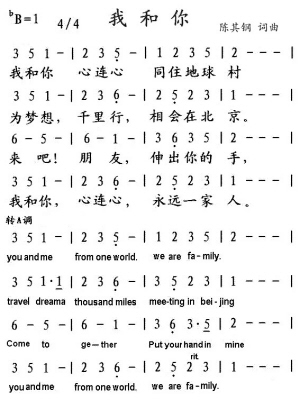 我和你
ᵇB=1 4/4
陈其钢 词曲
3 5 1 - | 2 3 5̣ - | 1 2 3 5 | 2 - - - |
我和你 心连心 同住地球 村
3 5 1 - | 2 3 6̣ - | 2 5̣ 2 3 | 1 - - - |
为梦想， 千里行， 相会在北 京。
6 - 5 - | 6 - 1 - | 3 6 3 5 | 2 - - - |
来 吧！ 朋 友， 伸出你的 手，
3 5 1 - | 2 3 6̣ - | 2 5̣ 2 3 | 1 - - - |
我和你， 心连心， 永远一家 人。
转A调
3 5 1 - | 2 3 5̣ - | 1 2 3 5 | 2 - - - |
you and me from one world. we are fa-mily.
3 5 1·1 | 2 3 6̣ - | 2 5̣ 2 3 | 1 - - - |
travel dreama thousand miles mee-ting in bei-jing
6 - 5 - | 6 - 1 - | 3 6̣ 3·5 | 2 - - - |
Come to ge-ther Put your hand in mine
rit.
3 5 1 - | 2 3 6̣ - | 2 5̣ 2 3 | 1 - - - |
you and me from one world. we are fa-mily.